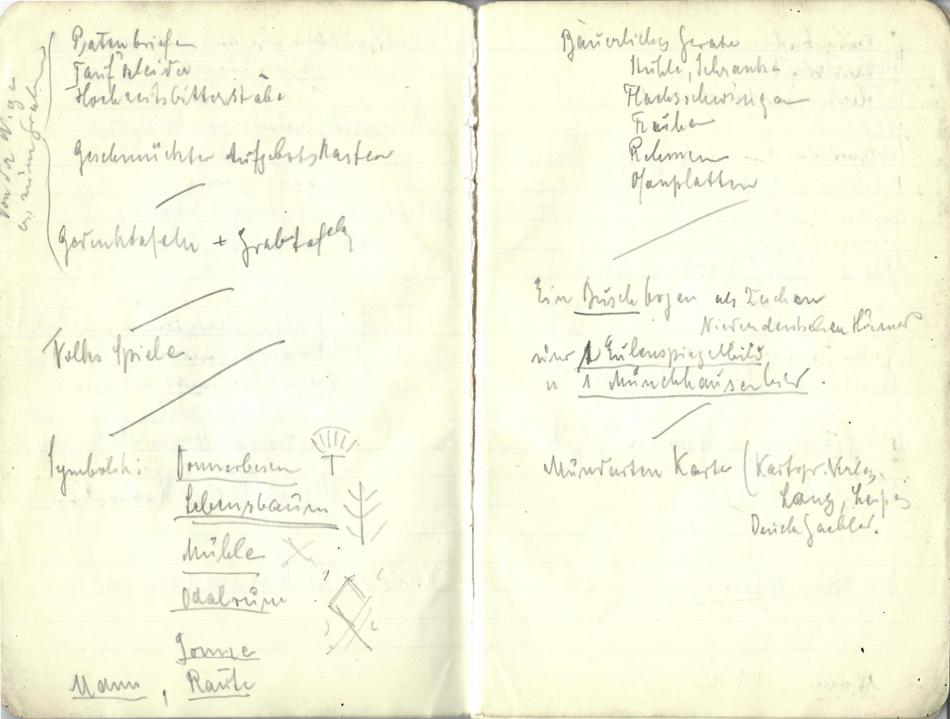 Von der Wiege
bis zum Grabe
Patenbriefe
Taufkleider
Hochzeitsbitterstäbe
Geschmückter Aufgebotskasten
Gedenktafeln + Grabtafeln
Volks Spiele
Symbolik: Donnerbesen
Lebensbaum
Mühle
Odalrune
Sonne
Mann, Raute
Bäuerliches Gerät
Stühle, Schränke
Flachsschwingen
Truhen
Rahmen
Ofenplatten
Ein Busch bogen als Zeichen
Niederdeutschen Humors
1 Eulenspiegelbild
u 1 Münchhausenbild.
Mundarten Karte (Kartogr. Verlag,
Lang, Leipzig
Druck Gaebler.